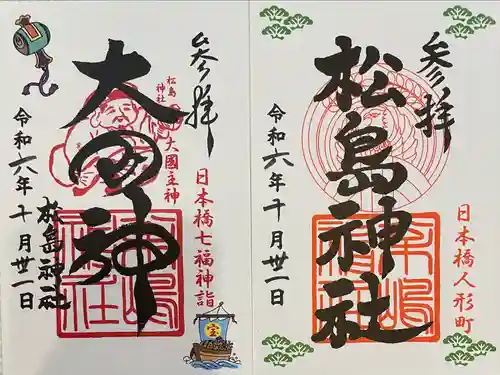 参拝
松島神社
日本橋人形町
令和六年十月廿一日
参拝
松島
神社
大國主神
日本橋七福神詣
大国神
松島神社
令和六年十月廿一日
宝